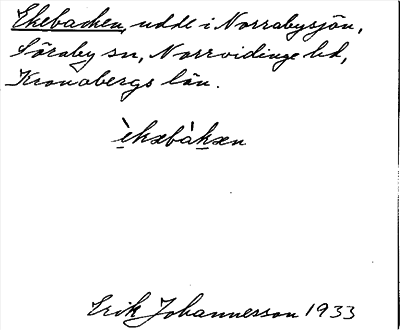 Ekebacken, udde i Norrabysjön,
Söraby sn, Norrvidinge hd,
Kronobergs län.
è̱kəbàkən
Erik Johannesson 1933